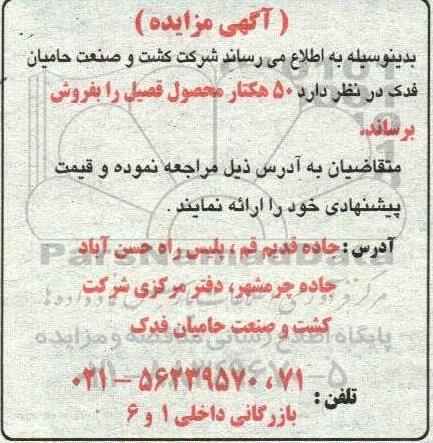 ( آگهی مزایده )
بدینوسیله به اطلاع می رساند شرکت کشت و صنعت حامیان
فدک در نظر دارد ۵۰ هکتار محصول قصیل را بفروش
برساند.
متقاضیان به آدرس ذیل مراجعه نموده و قیمت
پیشنهادی خود را ارائه نمایند .
آدرس : جاده قدیم قم ، پلیس راه حسن آباد
جاده چرمشهر، دفتر مرکزی شرکت
کشت و صنعت حامیان فدک
تلفن : ۷۱ ، ۵۶۲۳۹۵۷۰ – ۰۲۱
بازرگانی داخلی ۱ و ۶
پایگاه اطلاع رسانی مناقصه و مزایده